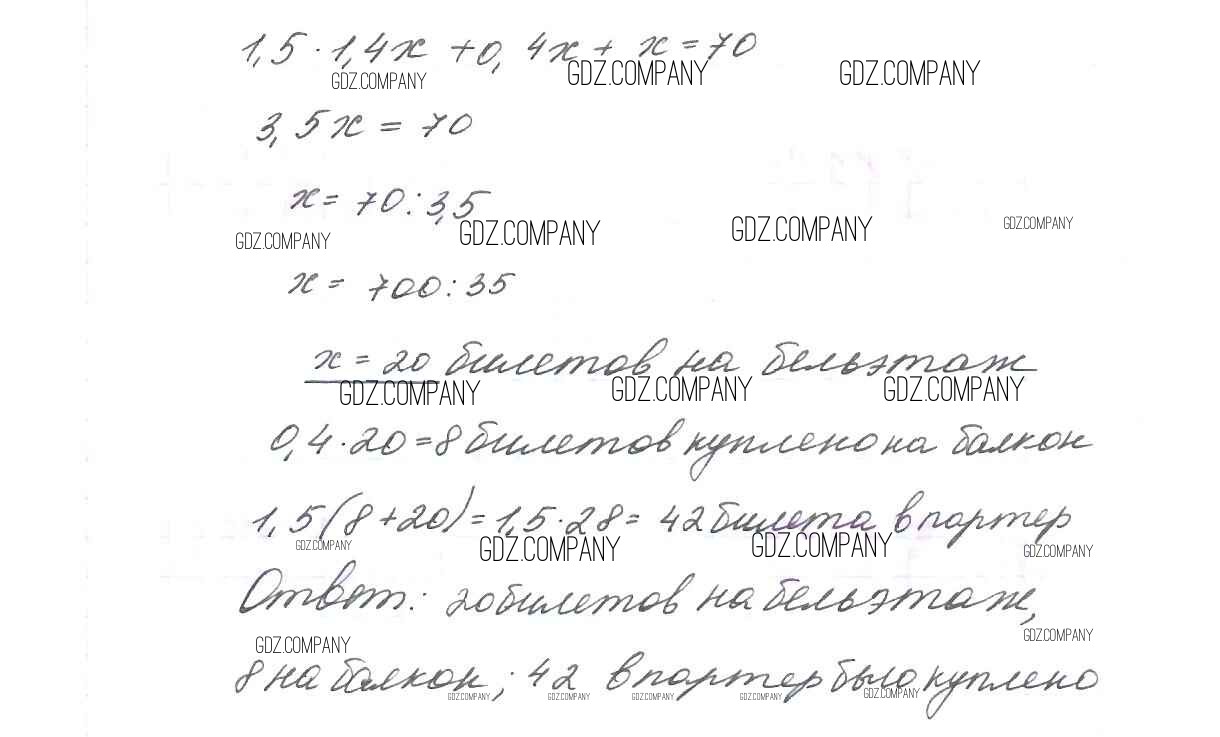 1,5 · 1,4x + 0,4x + x = 70
GDZ.COMPANY GDZ.COMPANY GDZ.COMPANY
3,5x = 70
x = 70 : 3,5
GDZ.COMPANY GDZ.COMPANY GDZ.COMPANY GDZ.COMPANY
x = 700 : 35
x = 20 билетов на бельэтаж
GDZ.COMPANY GDZ.COMPANY GDZ.COMPANY
0,4 · 20 = 8 билетов куплено на балкон
1,5(8+20) = 1,5 · 28 = 42 билета в партер
GDZ.COMPANY GDZ.COMPANY GDZ.COMPANY GDZ.COMPANY
Ответ: 20 билетов на бельэтаж,
GDZ.COMPANY GDZ.COMPANY
8 на балкон; 42 в партер было куплено
GDZ.COMPANY GDZ.COMPANY GDZ.COMPANY GDZ.COMPANY GDZ.COMPANY